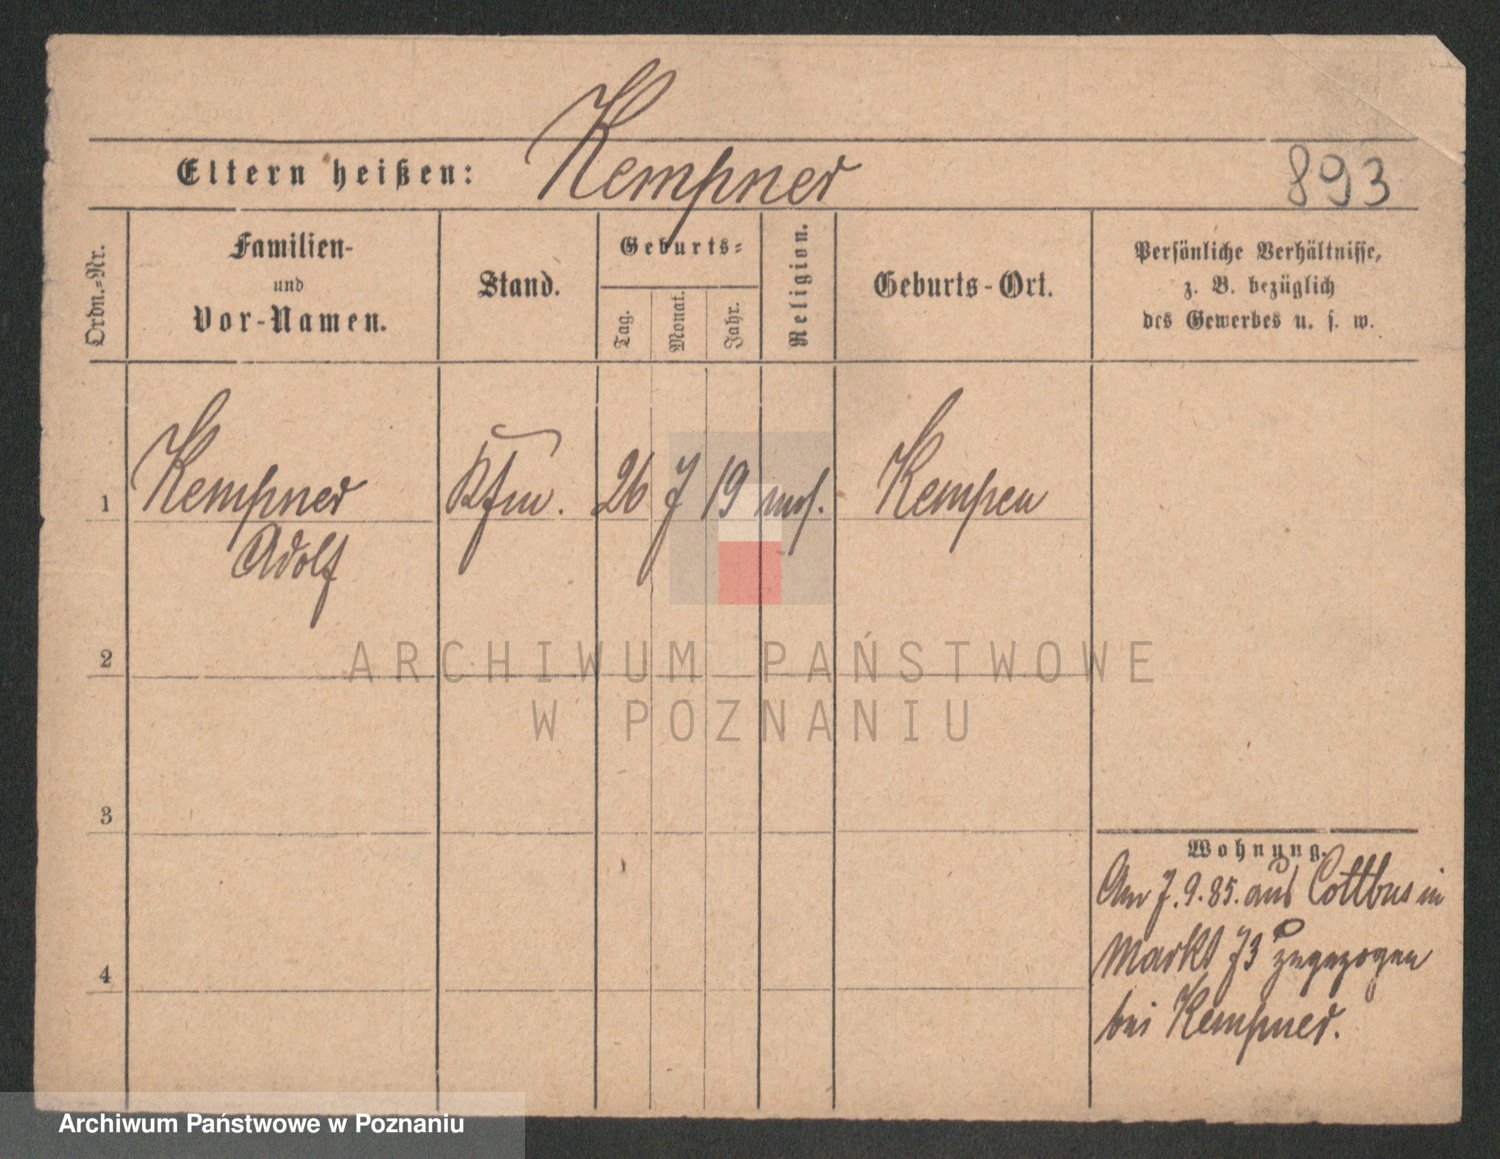 Kempner
Eltern heißen:
893
Ordm.-Nr.
Familien-
und
Vor-Namen.
Stand.
Geburts-
Tag.
Monat.
Jahr.
Religion.
Geburts-Ort.
Persönliche Verhältnisse,
z. B. bezüglich
des Gewerbes u. s. w.
1
Kempner
Adolf
Kfm.
26
7
19
mos.
Kempen
2
3
4
Wohnung.
Am 7.9.85. aus Cottbus in
Markt 73 zugezogen
bei Kempner.
ARCHIWUM PAŃSTWOWE
W POZNANIU
Archiwum Państwowe w Poznaniu